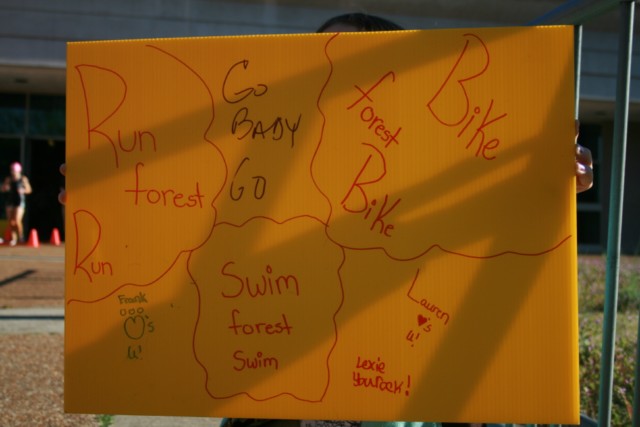 Run
forest
Run
Go
BABY
GO
Bike
forest
Bike
Swim
forest
Swim
Frank
's
U!
Lauren
♥'s
U!
Lexie
You rock!